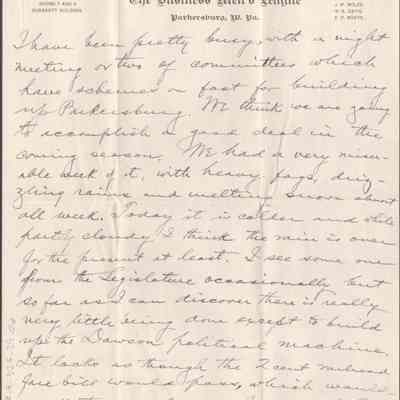 The Business Men's League
Parkersburg, W. Va.
I have been pretty busy, with a night
meeting or two of committees which
have schemes on foot for building
up Parkersburg. We think we are going
to accomplish a good deal in the
coming season. We had a very miser-
able week of it, with heavy fogs, driz-
zling rains and melting snow about
all week. Today it is colder and while
partly cloudy I think the rain is over
for the present at least. I see some one
from the Legislature occasionally but
so far as I can discover there is really
very little being done except to build
up the Dawson political machine.
It looks as though the 2 cent railroad
fare bill would pass, which would